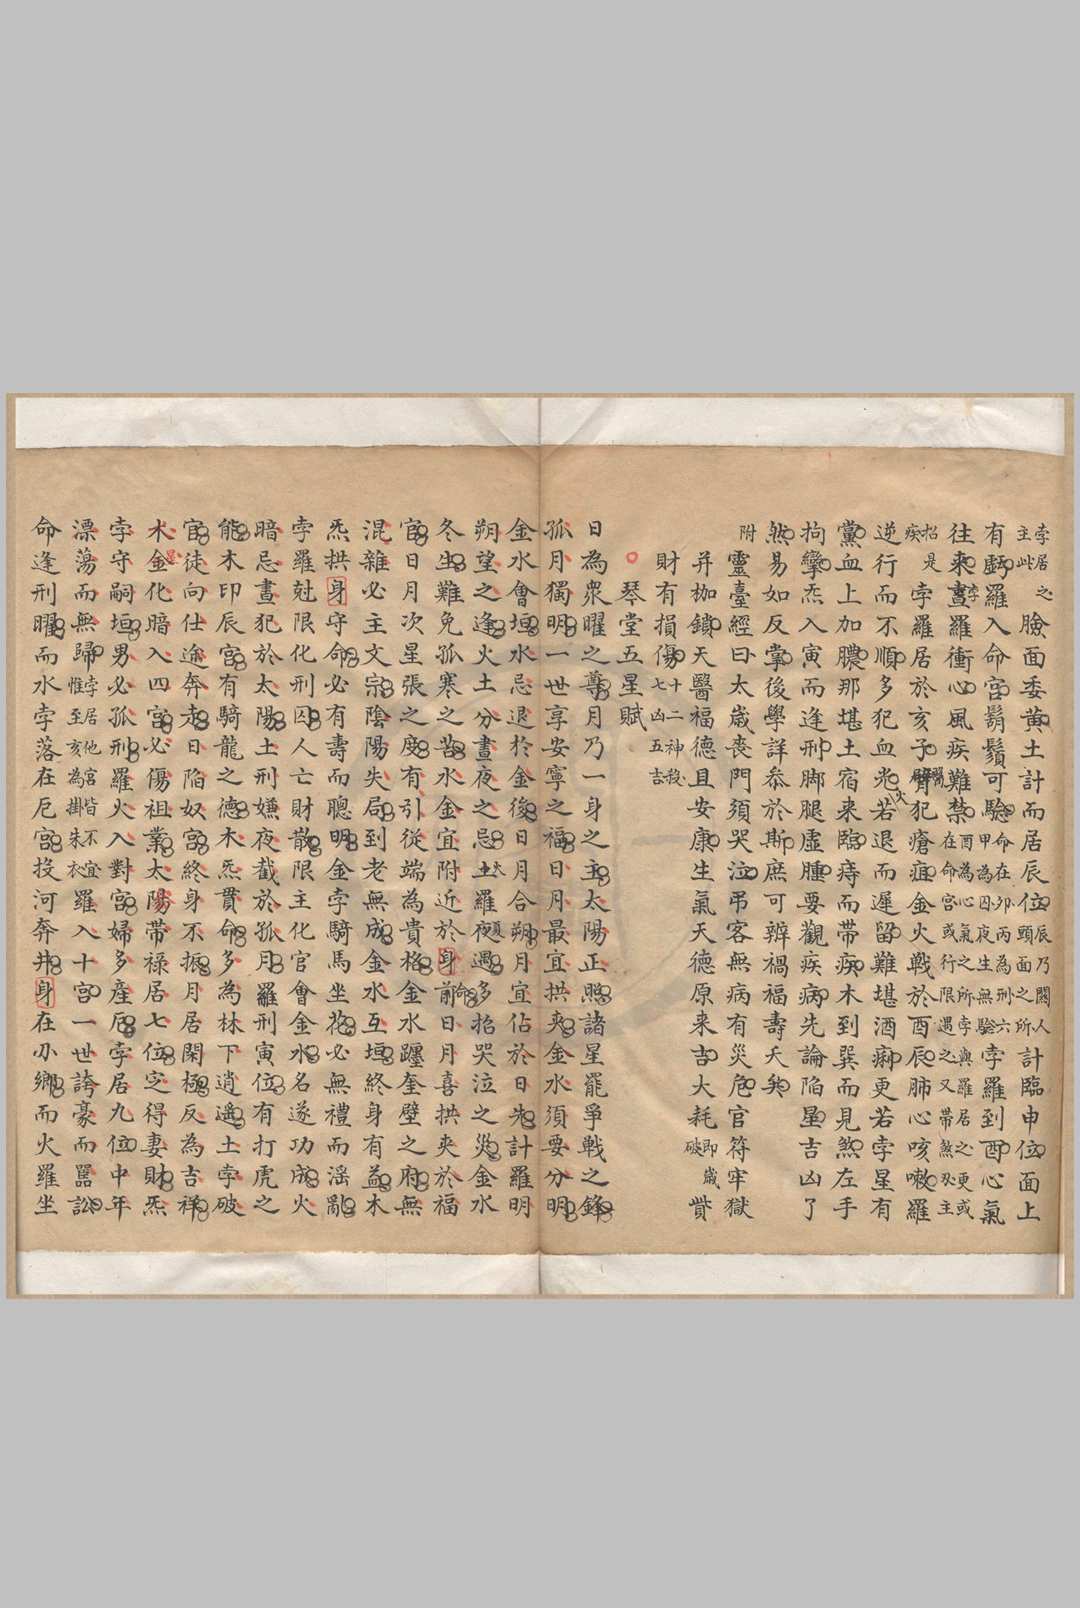 孛居之主此臉面委黃土計而居辰位辰乃闕人頭面之所計臨申位面上
有羅入命宮鬍鬚可驗命在卯丙為刑六甲為囚夜生無驗孛羅到酉心氣
往來晝孛羅衝心風疾難禁酉為心氣之所孛與羅居之更或在命宮或行限遇之又帶煞必主
招是疾孛羅居於亥子腎臂犯瘡疽金火戰於酉辰肺心咳嗽羅
逆行而不順多犯血光若退而遲留難堪酒痢更若孛星有
黨血上加膿那堪土宿來臨痔而帶痰木到巽而見煞左手
拘攣炁入寅而逢刑脚腿虛腫要觀疾病先論陷星吉凶了
然易如反掌後學詳叅於斯庶可辨禍福壽夭矣
附靈臺經曰太歲喪門須哭泣弔客無病有災危官符牢獄
并枷鎖天醫福德且安康生氣天德原來吉大耗即歲破貲
財有損傷十二神殺七凶五吉
琴堂五星賦
日為衆曜之尊月乃一身之主太陽正照諸星罷爭戰之鋒
孤月獨明一世享安寧之福日月最宜拱夾金水須要分明
金水會垣水忌退於金後日月合朔月宜佔於日先計羅明
朔望之逢火土分晝夜之忌土羅夜遇多招哭泣之災金水
冬生難免孤寒之苦水金宜附近於身前命日月喜拱夾於福
官日月次星張之度有引從端為貴格金水躔奎壁之府無
混雜必主文宗陰陽失局到老無成金水互垣終身有益木
炁拱身守命必有壽而聰明金孛騎馬坐花必無禮而淫亂
孛羅尅限化刑囚人亡財散限主化官會金水名遂功成火
暗忌晝犯於太陽土刑嫌夜截於孤月羅刑寅位有打虎之
能木印辰宮有騎龍之德木炁貫命多為林下逍遙土孛破
官徒向仕途奔走日陷奴宮終身不振月居閑極反為吉祥
木金化暗入四宮必傷祖業太陽帶祿居七位定得妻財炁
孛守嗣垣男必孤刑羅火入對宮婦多產厄孛居九位中年
漂蕩而無歸孛居他宮皆不宜惟至亥為掛朱衣羅入十宮一世誇豪而囂訟
命逢刑曜而水孛落在厄宮投河奔井身在卯鄉而火羅坐